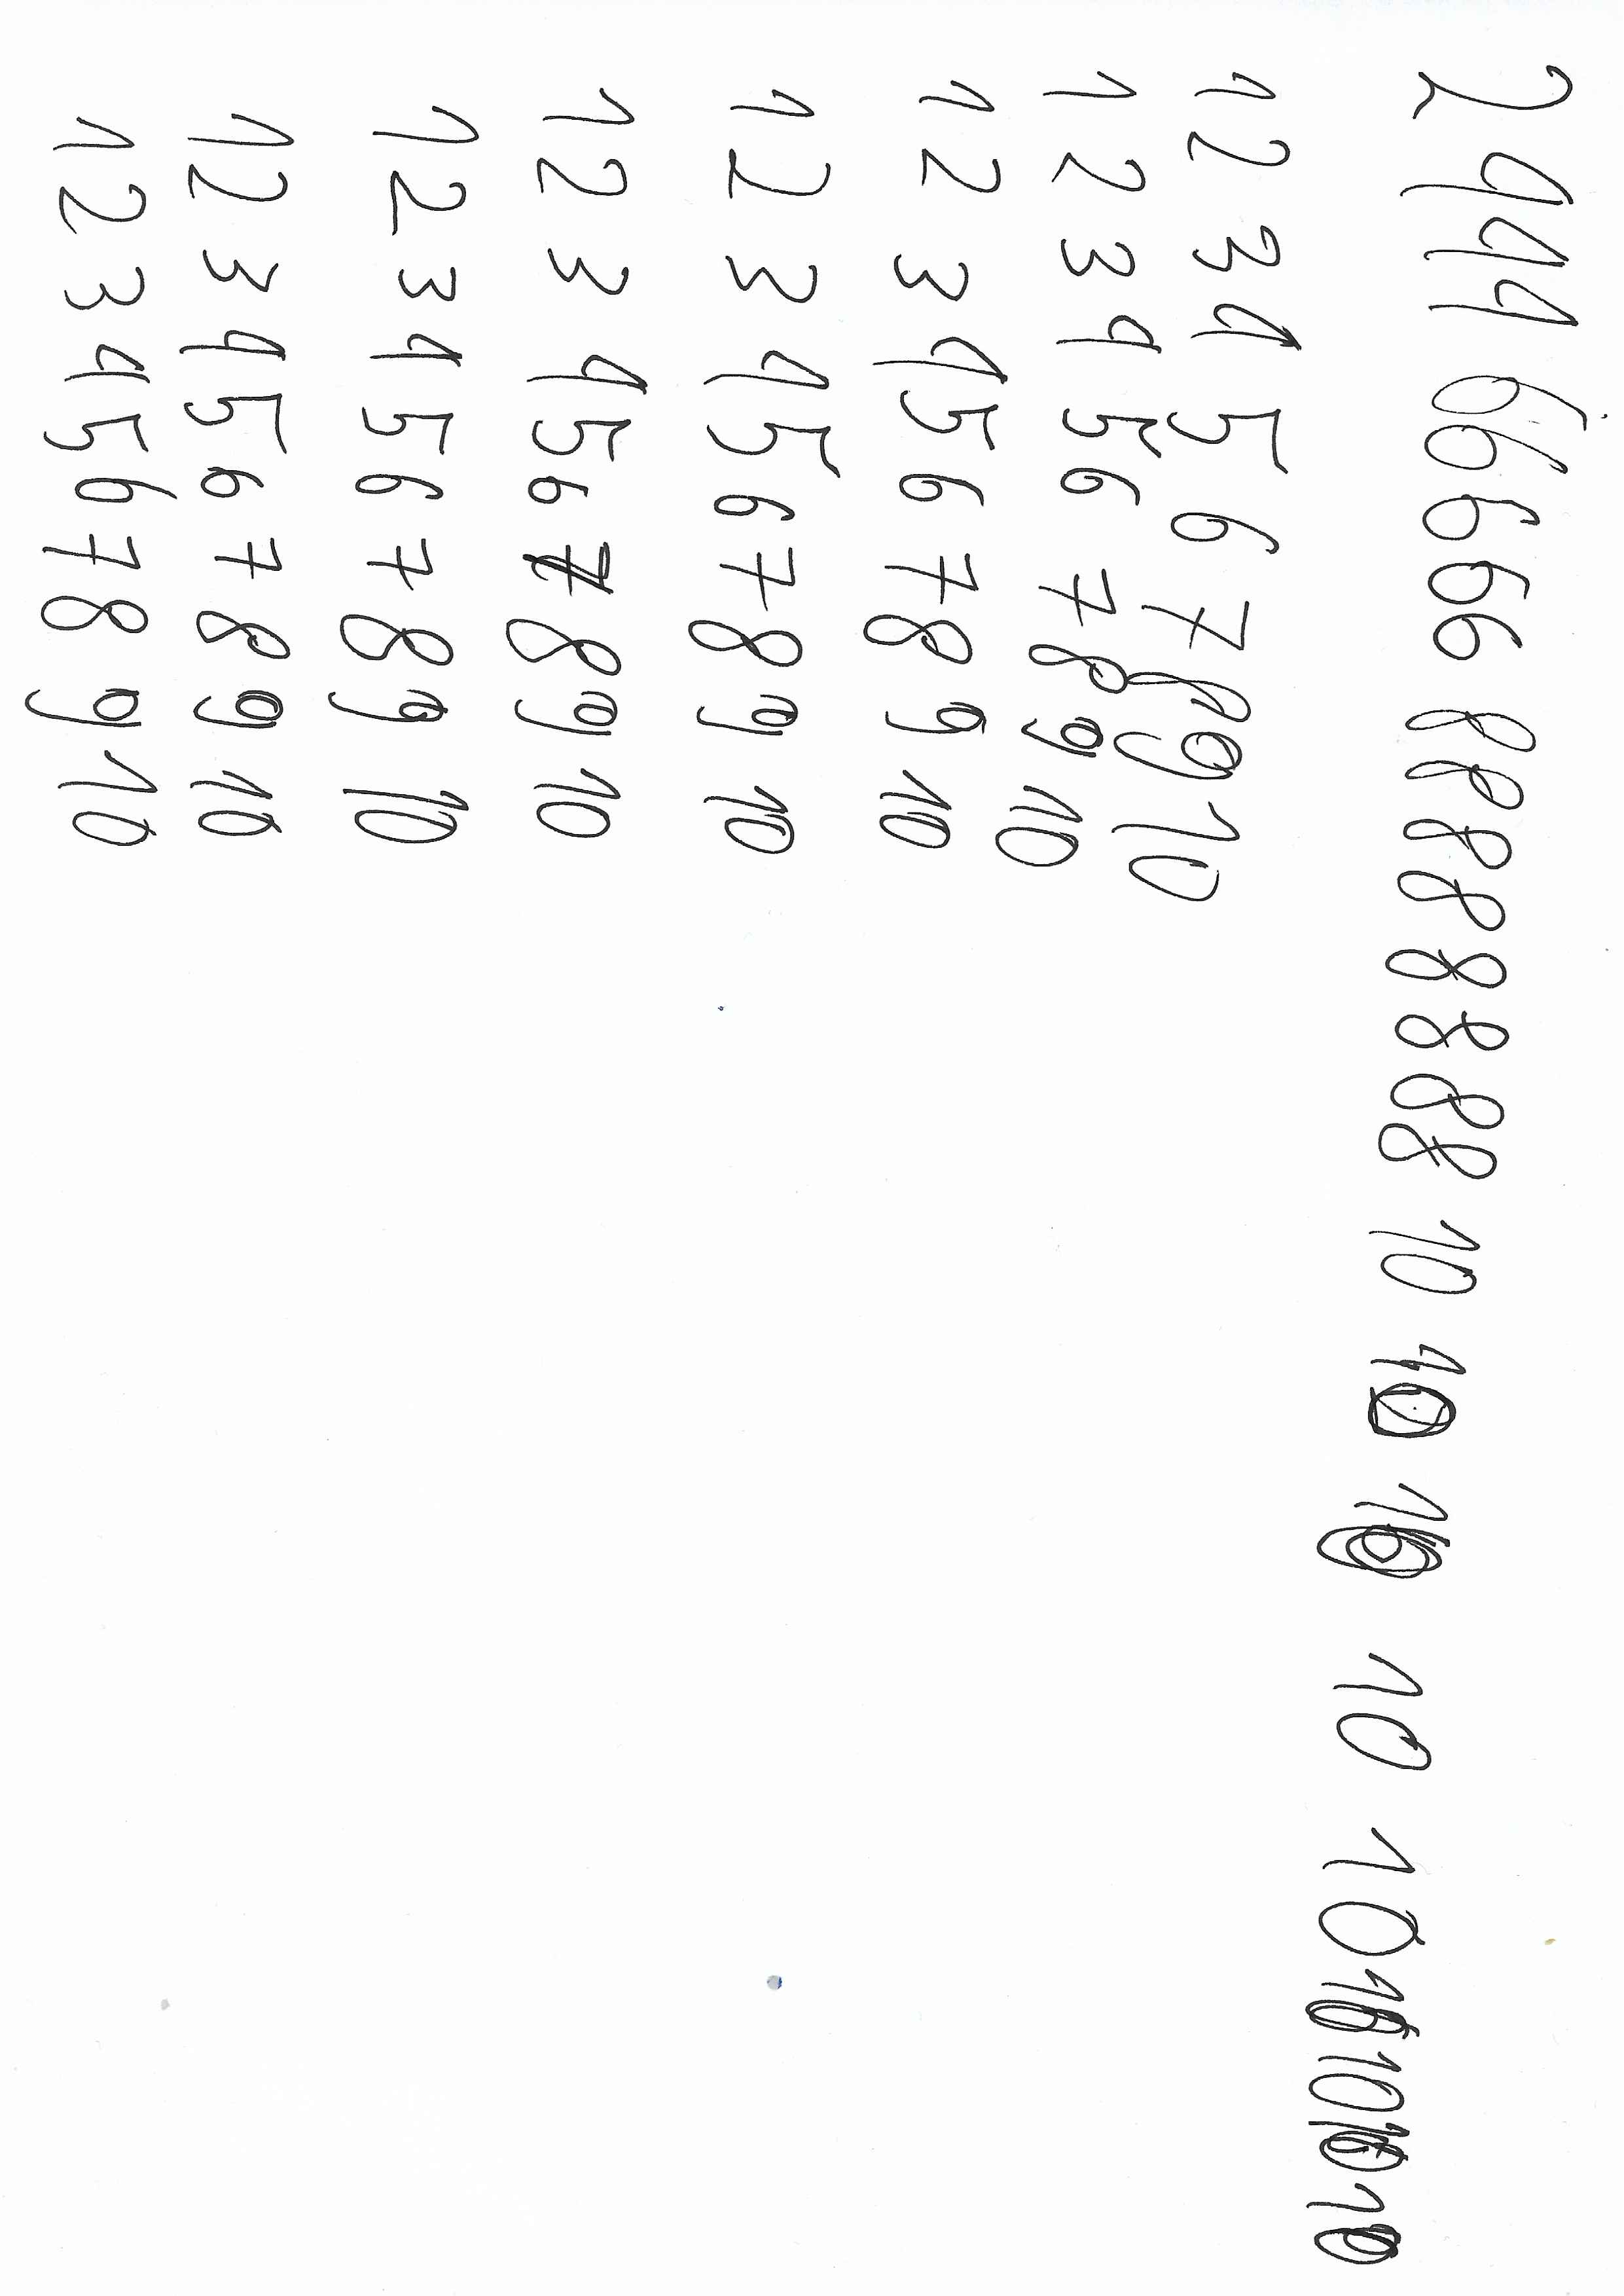 2 4 4 4 6 6 6 6 6 8 8 8 8 8 8 8 8 10 10 10 10 10 10 10 10 10
1 2 3 4 5 6 7 8 9 10
1 2 3 4 5 6 7 8 9 10
1 2 3 4 5 6 7 8 9 10
1 2 3 4 5 6 7 8 9 10
1 2 3 4 5 6 7 8 9 10
1 2 3 4 5 6 7 8 9 10
1 2 3 4 5 6 7 8 9 10
1 2 3 4 5 6 7 8 9 10